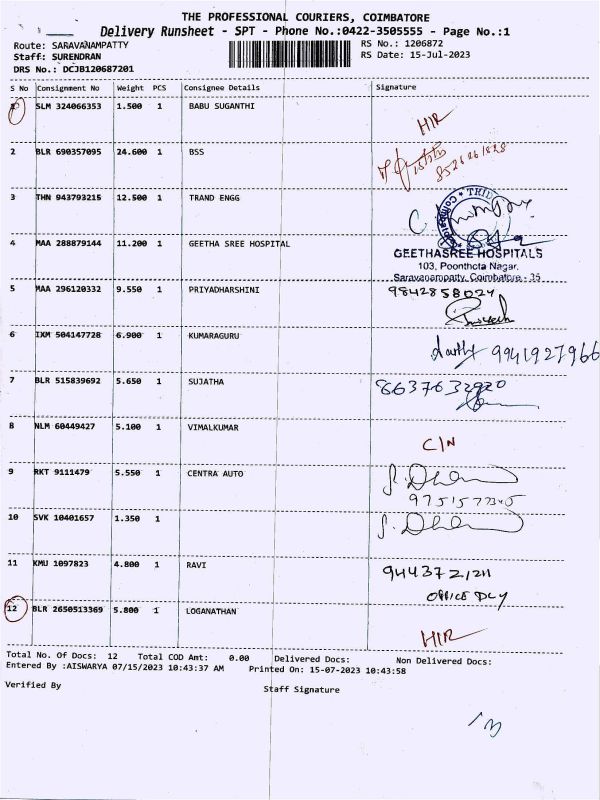 THE PROFESSIONAL COURIERS, COIMBATORE
Delivery Runsheet - SPT - Phone No.:0422-3505555 - Page No.:1
Route: SARAVANAMPATTY RS No.: 1206872
Staff: SURENDRAN RS Date: 15-Jul-2023
DRS No.: DCJB120687201
S No Consignment No Weight PCS Consignee Details Signature
1 SLM 324066353 1.500 1 BABU SUGANTHI
H/R
2 BLR 690357095 24.600 1 BSS
3 THN 943793215 12.500 1 TRAND ENGG
4 MAA 288879144 11.200 1 GEETHA SREE HOSPITAL
GEETHASREE HOSPITALS
103, Poonthota Nagar,
Saravanampatty, Coimbatore - 35
5 MAA 296120332 9.550 1 PRIYADHARSHINI 9842858024
6 IXM 504147728 6.900 1 KUMARAGURU
9941927966
7 BLR 515839692 5.650 1 SUJATHA 8637632920
8 NLM 60449427 5.100 1 VIMALKUMAR
C/N
9 RKT 9111479 5.550 1 CENTRA AUTO
S. Dha
10 SVK 10401657 1.350 1 S. Dha
11 KMU 1097823 4.800 1 RAVI 9443721211
OFFICE DLY
12 BLR 2650513369 5.800 1 LOGANATHAN
H/R
Total No. Of Docs: 12 Total COD Amt: 0.00 Delivered Docs: Non Delivered Docs:
Entered By :AISWARYA 07/15/2023 10:43:37 AM Printed On: 15-07-2023 10:43:58
Verified By Staff Signature